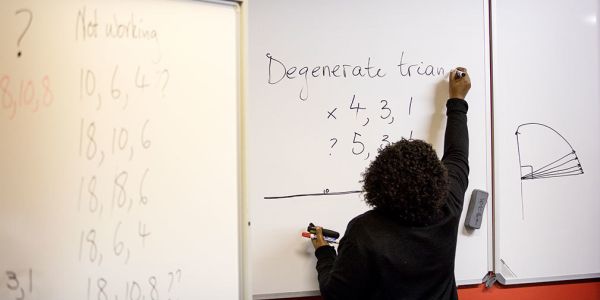 ?
Not working
8,10,8
10, 6, 4 ??
18, 10, 6
18, 18, 6
18, 6, 4
3, 1
18, 10, 8 ??
Degenerate trian
x 4, 3, 1
? 5, 3,
10